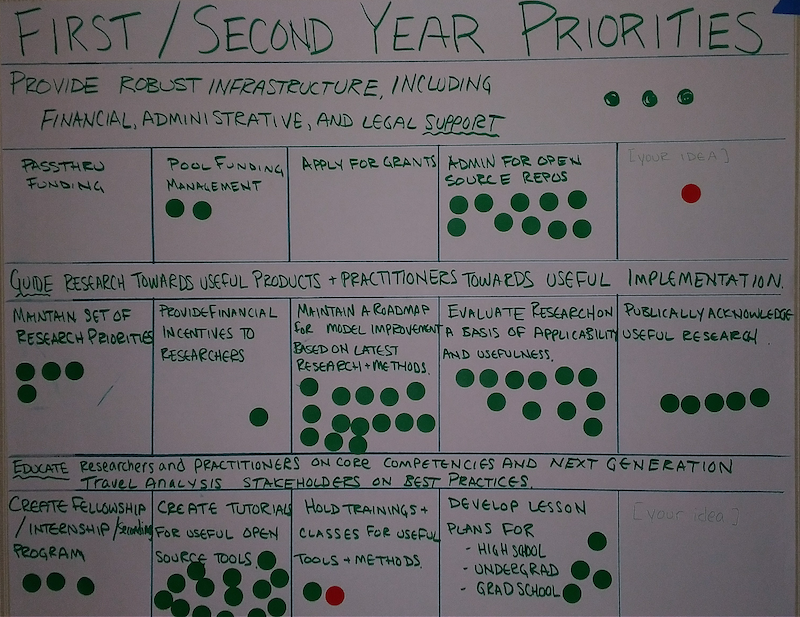 FIRST / SECOND YEAR PRIORITIES
PROVIDE ROBUST INFRASTRUCTURE, INCLUDING
FINANCIAL, ADMINISTRATIVE, AND LEGAL SUPPORT
PASSTHRU
FUNDING
POOL FUNDING
MANAGEMENT
APPLY FOR GRANTS
ADMIN FOR OPEN
SOURCE REPOS
[YOUR IDEA]
GUIDE RESEARCH TOWARDS USEFUL PRODUCTS + PRACTITIONERS TOWARDS USEFUL IMPLEMENTATION.
MAINTAIN SET OF
RESEARCH PRIORITIES
PROVIDE FINANCIAL
INCENTIVES TO
RESEARCHERS
MAINTAIN A ROADMAP
for MODEL IMPROVEMENT
BASED ON LATEST
RESEARCH + METHODS.
EVALUATE RESEARCH ON
A BASIS OF APPLICABILITY
AND USEFULNESS.
PUBLICALLY ACKNOWLEDGE
USEFUL RESEARCH.
EDUCATE Researchers and PRACTITIONERS ON CORE COMPETENCIES AND NEXT GENERATION
Travel ANALYSIS STAKEHOLDERS ON BEST PRACTICES.
CREATE FELLOWSHIP
/ INTERNSHIP / Seconding
PROGRAM
CREATE TUTORIALS
FOR USEFUL OPEN
SOURCE TOOLS.
HOLD TRAININGS +
CLASSES FOR USEFUL
TOOLS + METHODS.
DEVELOP LESSON
PLANS FOR
- HIGH SCHOOL
- UNDERGRAD
- GRAD SCHOOL
[your idea]